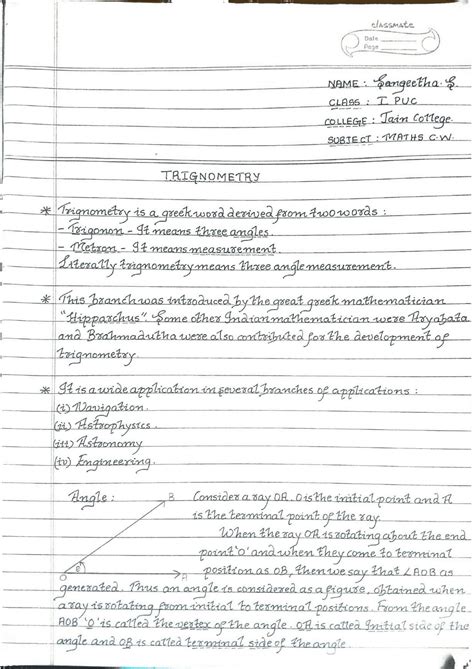 classmate
Date
Page
NAME : Sangeetha. S.
CLASS : I PUC
COLLEGE : Jain College.
SUBJECT : MATHS C.W.
TRIGNOMETRY
* Trignometry is a greek word derived from two words :
- Trigonon - It means three angles.
- Metron - It means measurement.
Literally trignometry means three angle measurement.
* This branch was introduced by the great greek mathematician
"Hipparchus". Some other Indian mathematician were Aryabata
and Brahmadutha were also contributed for the development of
trignometry.
* It is a wide application in several branches of applications :
(i) Navigation.
(ii) Astrophysics.
(iii) Astronomy
(iv) Engineering.
Angle :
B
Consider a ray OA. O is the initial point and A
is the terminal point of the ray.
When the ray OA is rotating about the end
point 'O' and when they come to terminal
O
θ
A
position as OB, then we say that ∠AOB as
generated. Thus an angle is considered as a figure, obtained when
a ray is rotating from initial to terminal positions. From the angle
AOB 'O' is called the vertex of the angle. OA is called Initial side of the
angle and OB is called terminal side of the angle.